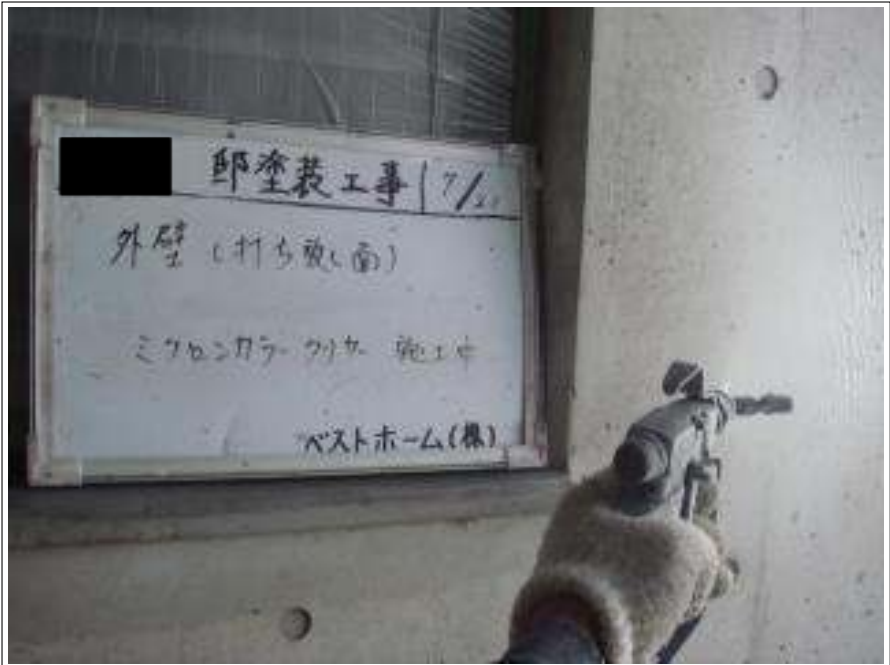 邸塗装工事 7/21
外壁 (打ち放し面)
ミクセンカラークリヤー 施工中
ベストホーム(株)